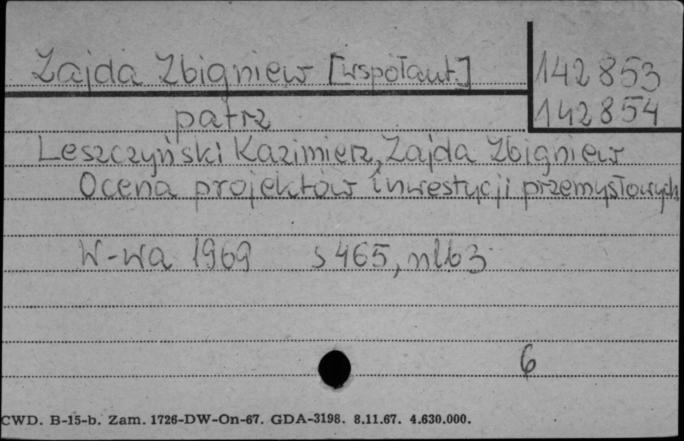 Zajda Zbigniew [współaut.]
142853
142854
patrz
Leszczyński Kazimierz, Zajda Zbigniew
Ocena projektów inwestycji przemysłowych
W-wa 1969 s 465, nlb 3
6
CWD. B-15-b. Zam. 1726-DW-On-67. GDA-3198. 8.11.67. 4.630.000.